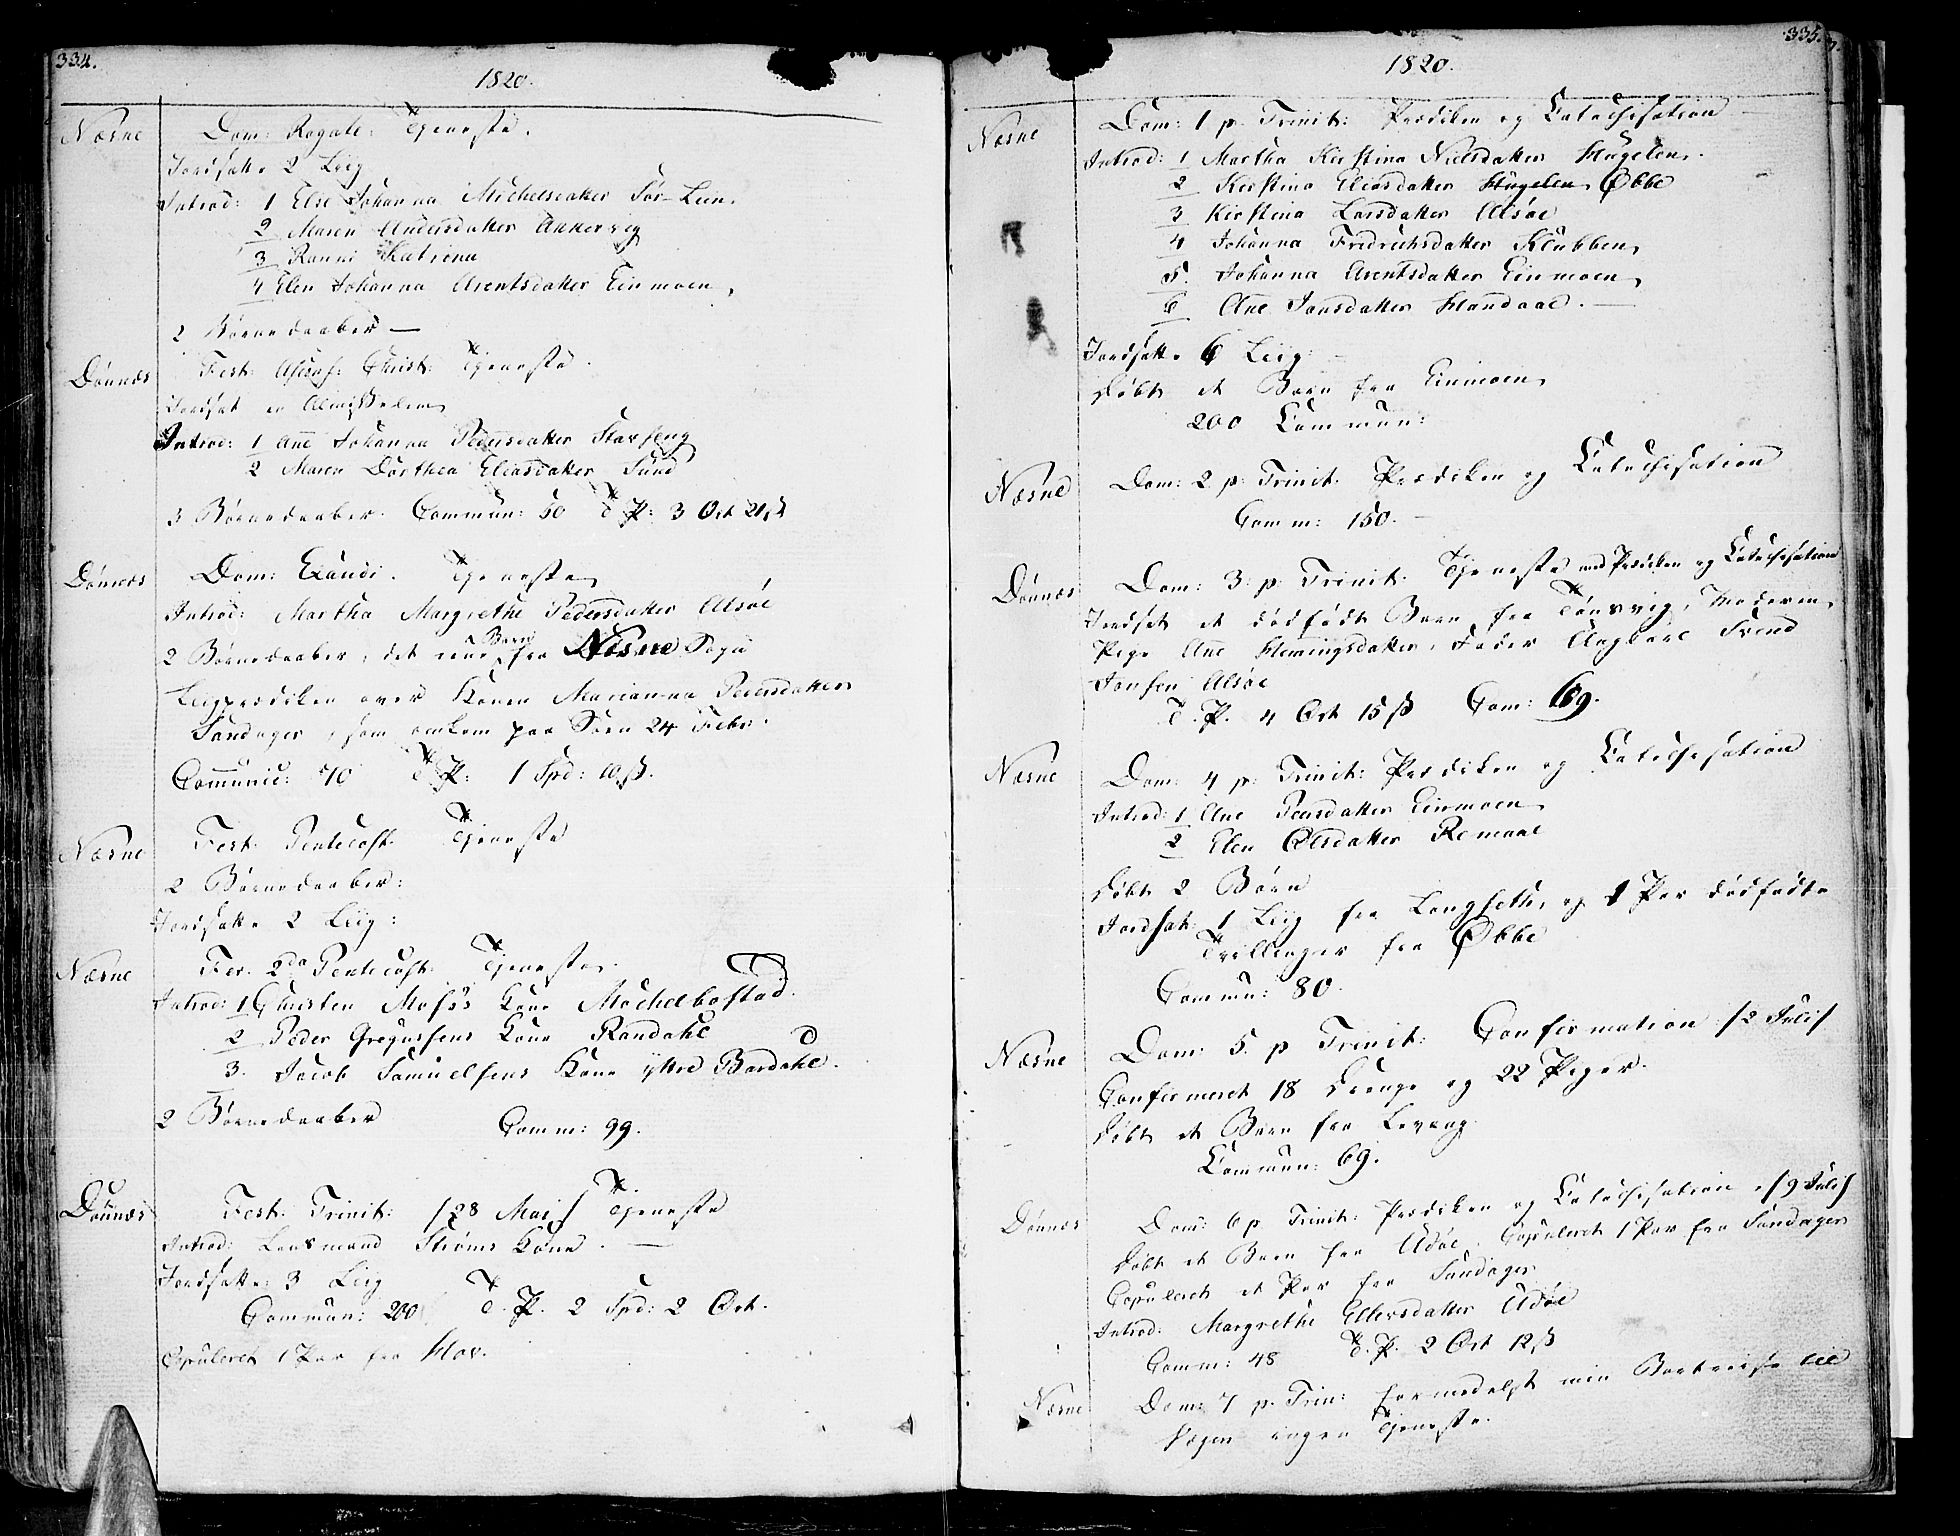 334.
1820.
Næsne Dom: Rogate: Tjeneste.
Jordfæste 2 Liig
Introd: 1 Else Johanna Michelsdatter Sør-Lien.
2 Maren Andersdatter Ankervig
3 Ranni Katrina
4 Elen Johanna Arentsdatter Einmoen,
2 Børnedaaber —
Dønnæs Fest: Ascens: Christi: Tjeneste.
Jordfæst en Almisselem
Introd: 1 Ane Johanna Pedersdatter Starseng
2 Maren Dorthea Eliasdatter Sund
3 Børnedaaber. Commun: 50 T. P: 3 Ort 21 ß
Dønnæs Dom: Exaudi. Tjeneste
Introd: Martha Margrethe Pedersdatter Alsøe
2 Børnedaaber, det ene Barn fra Næsne Sogn
Liigprædiken over Konen Marianna Pedersdatter
Sandager, som omkom paa Søen 24 Febr.
Communic: 70 T. P: 1 Spd: 10 ß.
Næsne Fest. Pentecost. Tjeneste
2 Børnedaaber:
Jordfæste 2 Liig:
Næsne Fer. 2da Pentecost. Tjeneste.
Introd: 1 Christen Mosis Kone Michelbostad.
2 Peder Gregussens Kone Randahl
3. Jacob Samuelsens Kone yttre Bardahl.
2 Børnedaaber Comm: 99.
Dønnæs Fest. Trinit: /28 Mai/ Tjeneste
Introd: Lensmand Strøms Kone. —
Jordfæste: 3 Liig
Commun: 200 T. P. 2 Spd: 2 Ort.
Copuleret 1 Par fra Hov.
335.
1820.
Næsne Dom: 1 p. Trinit: Prædiken og Catechisation
Introd: 1 Martha Kirstina Nielsdatter Hugelen.
2 Kirstina Eliasdatter Hugelen, Øbbe
3 Kirstina Larsdatter Alsøe
4 Johanna Fredrichsdatter Klubben,
5. Johanna Arentsdatter Einmoen,
6 Ane Jonsdatter Handaae. —
Jordfæste 6 Liig:
Døbt et Barn fra Einmoen,
200 Commun:
Næsne Dom: 2 p: Trinit. Prædiken og Catechisation
Comm: 150. —
Dønnæs Dom: 3: p: Trinit. Tjeneste med Prædiken og Catechisation
Jordfæst et dødfødt Barn fra Tønsvig, Moderen,
Pige Ane Hemingsdatter, Fader Svend
Jonsen Alsøe
T. P. 4 Ort 15 ß Com: 69.
Næsne Dom: 4 p: Trinit: Prædiken og Catechisation
Introd: 1 Ane Pedersdatter Einmoen,
2 Elen Olsdatter Remaae
Døbt 2 Børn
Jordfæst: 1 Liig fra Langseth, og 1 Par dødfødte
Tvillinger fra Øbbe
Commun: 80.
Næsne Dom: 5. p Trinit: Confirmation /2 Juli/
Confirmeret 18 Drenge og 22 Piger.
Døbt et Barn fra Levang.
Commun: 69.
Dønnæs Dom: 6 p. Trinit: Prædiken og Catechisation, /9 Juli/
Døbt et Barn fra Udøe. Copuleret 1 Par fra Sandager
Copuleret et Par fra Sandager
Introd: Margrethe Ellevsdatter Udøe
Comm: 48 T. P. 2 Ort 12 ß
Næsne Dom: 7 p. Trin: formedelst min Bortreise til
Vægen ingen Tjeneste.